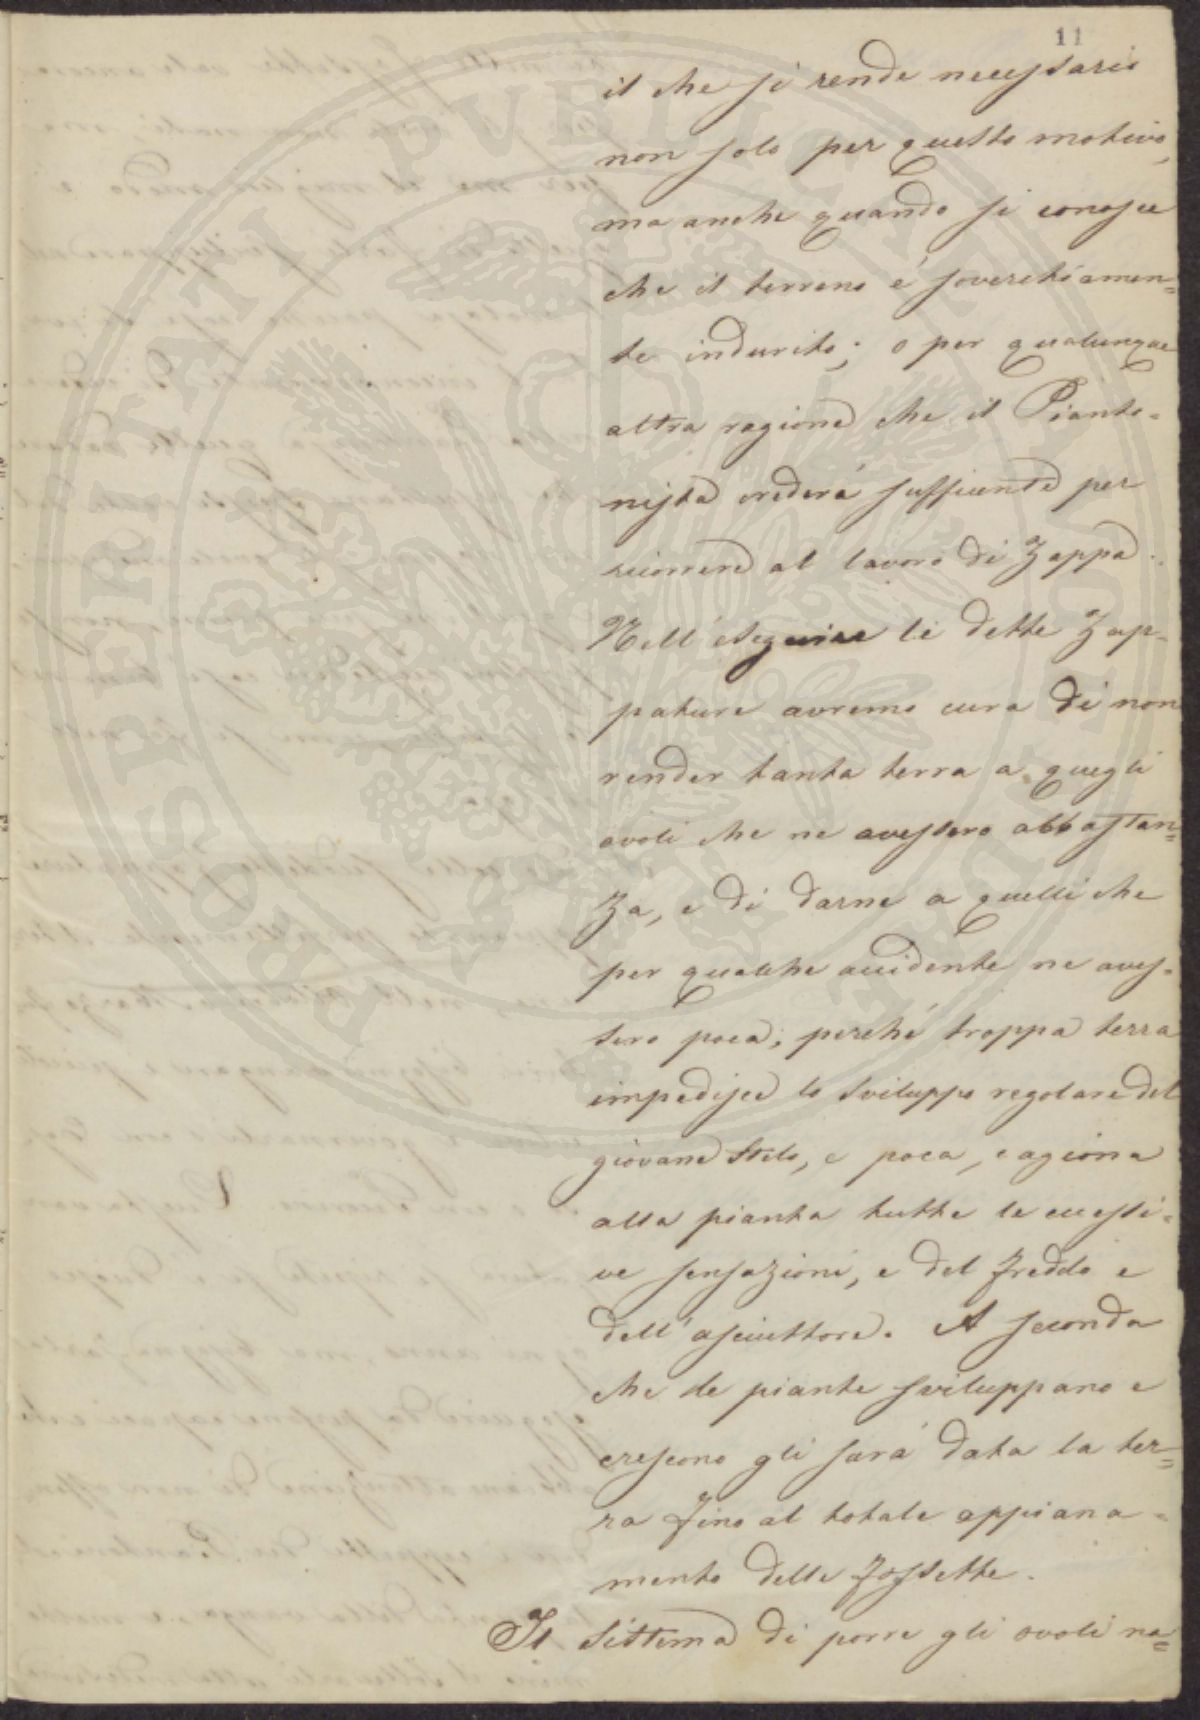 11
il che si rende necessario
non solo per questo motivo,
ma anche quando si conosce
che il terreno é soverchiamen=
te indurito; o per qualunque
altra ragione che il Pianto=
nista crederá sufficente per
ricorrere al lavoro di Zappa.
Nell'eseguire le dette Zap=
pature avremo cura di non
render tanta terra a quegli
ovoli che ne avessero abbastan=
za, e di darne a quelli che
per qualche accidente ne aves=
sero poca; perché troppa terra
impedisce lo sviluppo regolare del
giovane stelo, e poca, cagiona
alla pianta tutte le eccessi=
ve sensazioni, e del freddo e
dell'asciuttore. A seconda
che le piante sviluppano e
crescono gli sará data la ter=
ra fino al totale appiana=
mento delle fossette.
Il sistema di porre gli ovoli na=
PROSPERITATI PVBLICAE